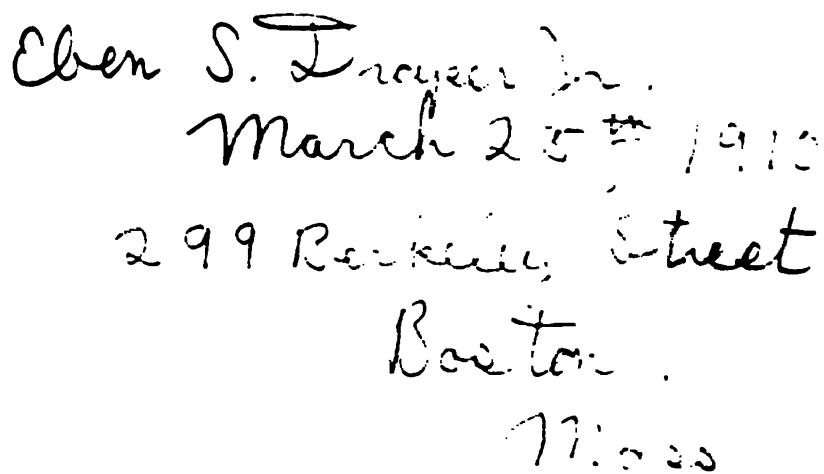 Eben S. Draper Jr.
March 25th 1910
299 Berkeley Street
Boston.
Mass